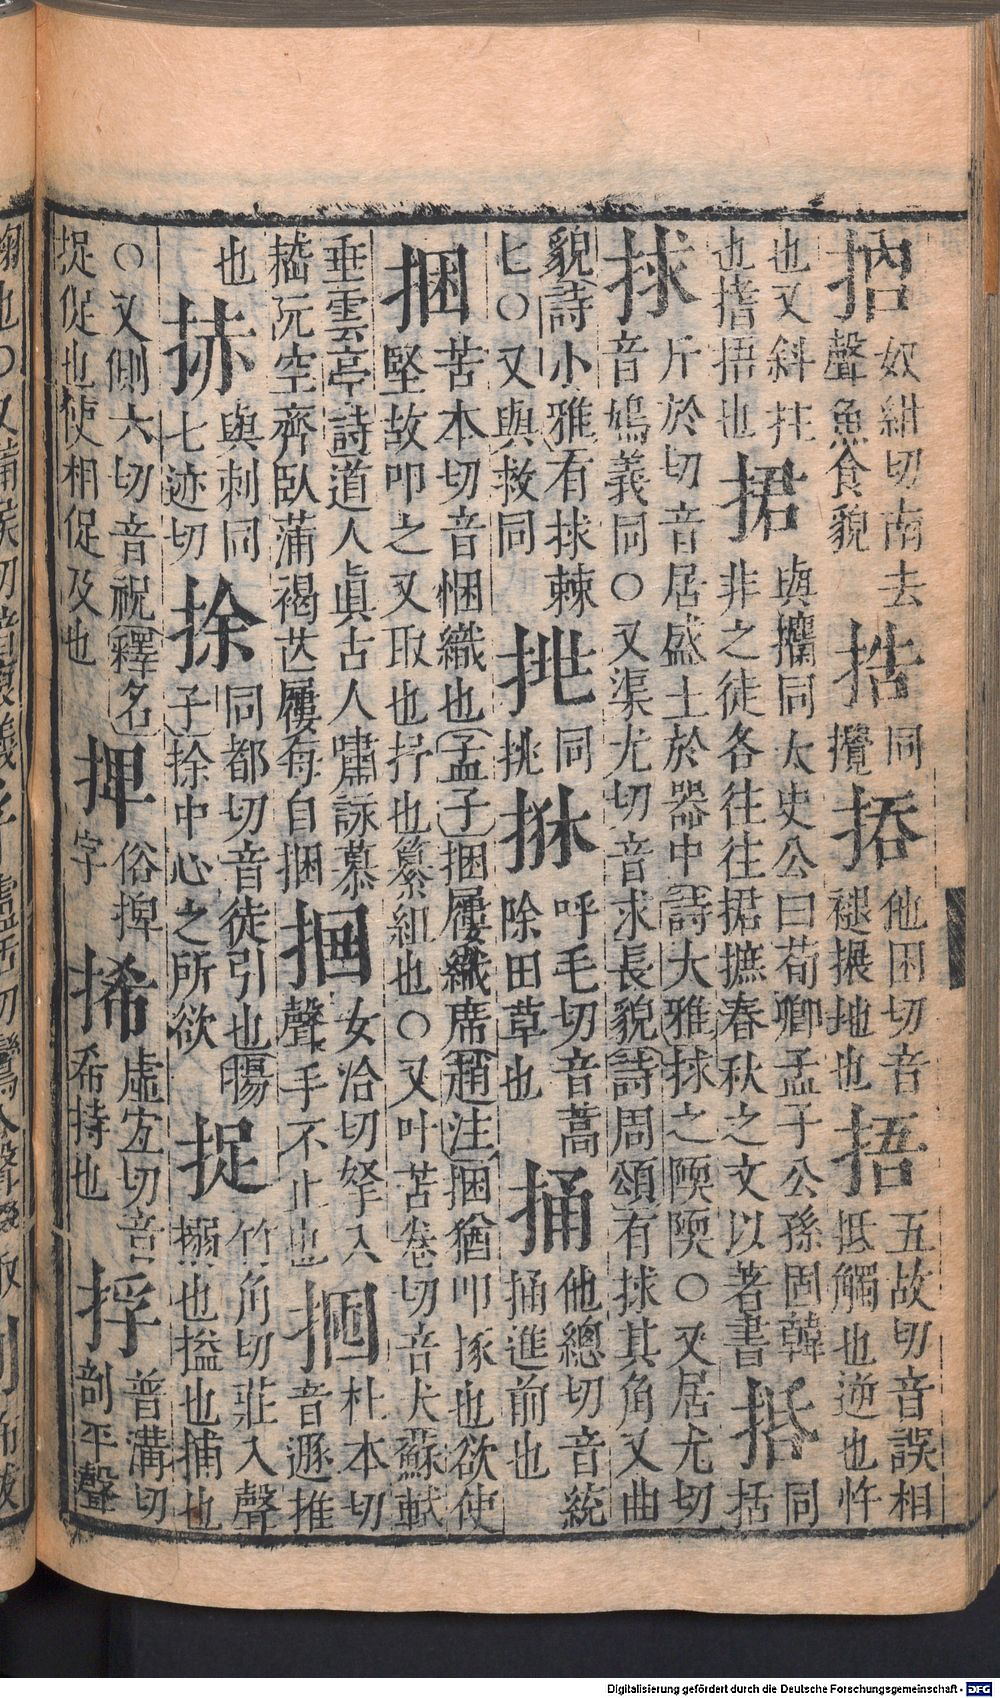 奴紺切南去
聲魚食貌
捁
同
攪
他困切音
褪捵地也
捂
五故切音誤相
抵觸也逆也忤
也又斜拄
也揩捂也
捃
與攟同太史公曰荀卿孟子公孫固韓
非之徒各往往捃摭春秋之文以著書
同
括
捄
斤於切音居盛土於器中詩大雅捄之陾陾○又居尤切
音鳩義同○又渠尤切音求長貌詩周頌有捄其角又曲
貌詩小雅有捄棘
匕○又與救同
同
挑
呼毛切音蒿
除田草也
捅
他總切音統
捅進前也
捆
苦本切音悃織也孟子捆屨織席趙注捆猶叩㧻也欲使
堅故叩之又取也抒也纂組也○又叶苦卷切音犬蘇軾
垂雲亭詩道人眞古人嘯詠慕
嵇阮空齊臥蒲褐芒屨每自捆
女洽切拏入
聲手不止也
杜本切
音遯推
也
與刺同
七迹切
捈
同都切音徒引也揚
子捈中心之所欲
捉
竹角切莊入聲
搦也搤也捕也
○又側六切音祝釋名
捉促也使相促及也
俗捭
字
虛宜切音
希持也
捊
普溝切
剖平聲
Digitalisierung gefördert durch die Deutsche Forschungsgemeinschaft - DFG